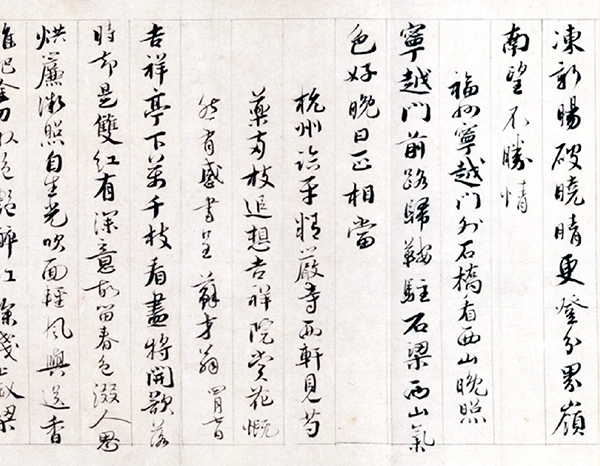 凍新暘破曉晴更登分界嶺
南望不勝情
福州寧越門外石橋看西山晚照
寧越門前路歸鞍駐石梁西山氣
色好晚日正相當
杭州臨平精嚴寺西軒見芍
藥兩枝追想吉祥院賞花慨
然有感書呈 蘇才翁
吉祥亭下萬千枝看盡將開欲落
時却是雙紅有深意故留春色綴人思
烘簾微照自生光吹面輕風與送香
誰把金刀收絕艷醉紅深淺上釵梁